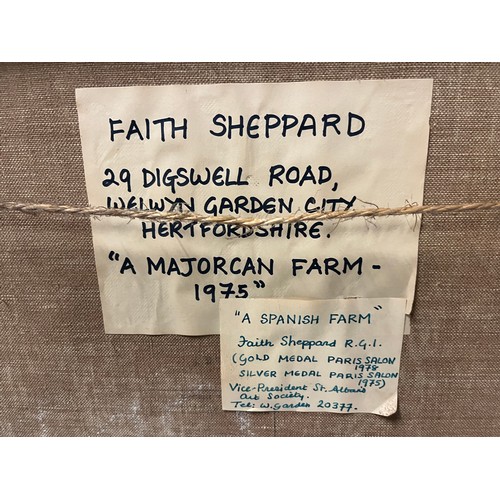 FAITH SHEPPARD
29 DIGSWELL ROAD,
WELWYN GARDEN CITY
HERTFORDSHIRE.
"A MAJORCAN FARM -
1975"
"A SPANISH FARM"
Faith Sheppard R.G.I.
(GOLD MEDAL PARIS SALON
1978
SILVER MEDAL PARIS SALON
1975)
Vice-President St. Albans
Art Society.
Tel: W. Garden 20377.